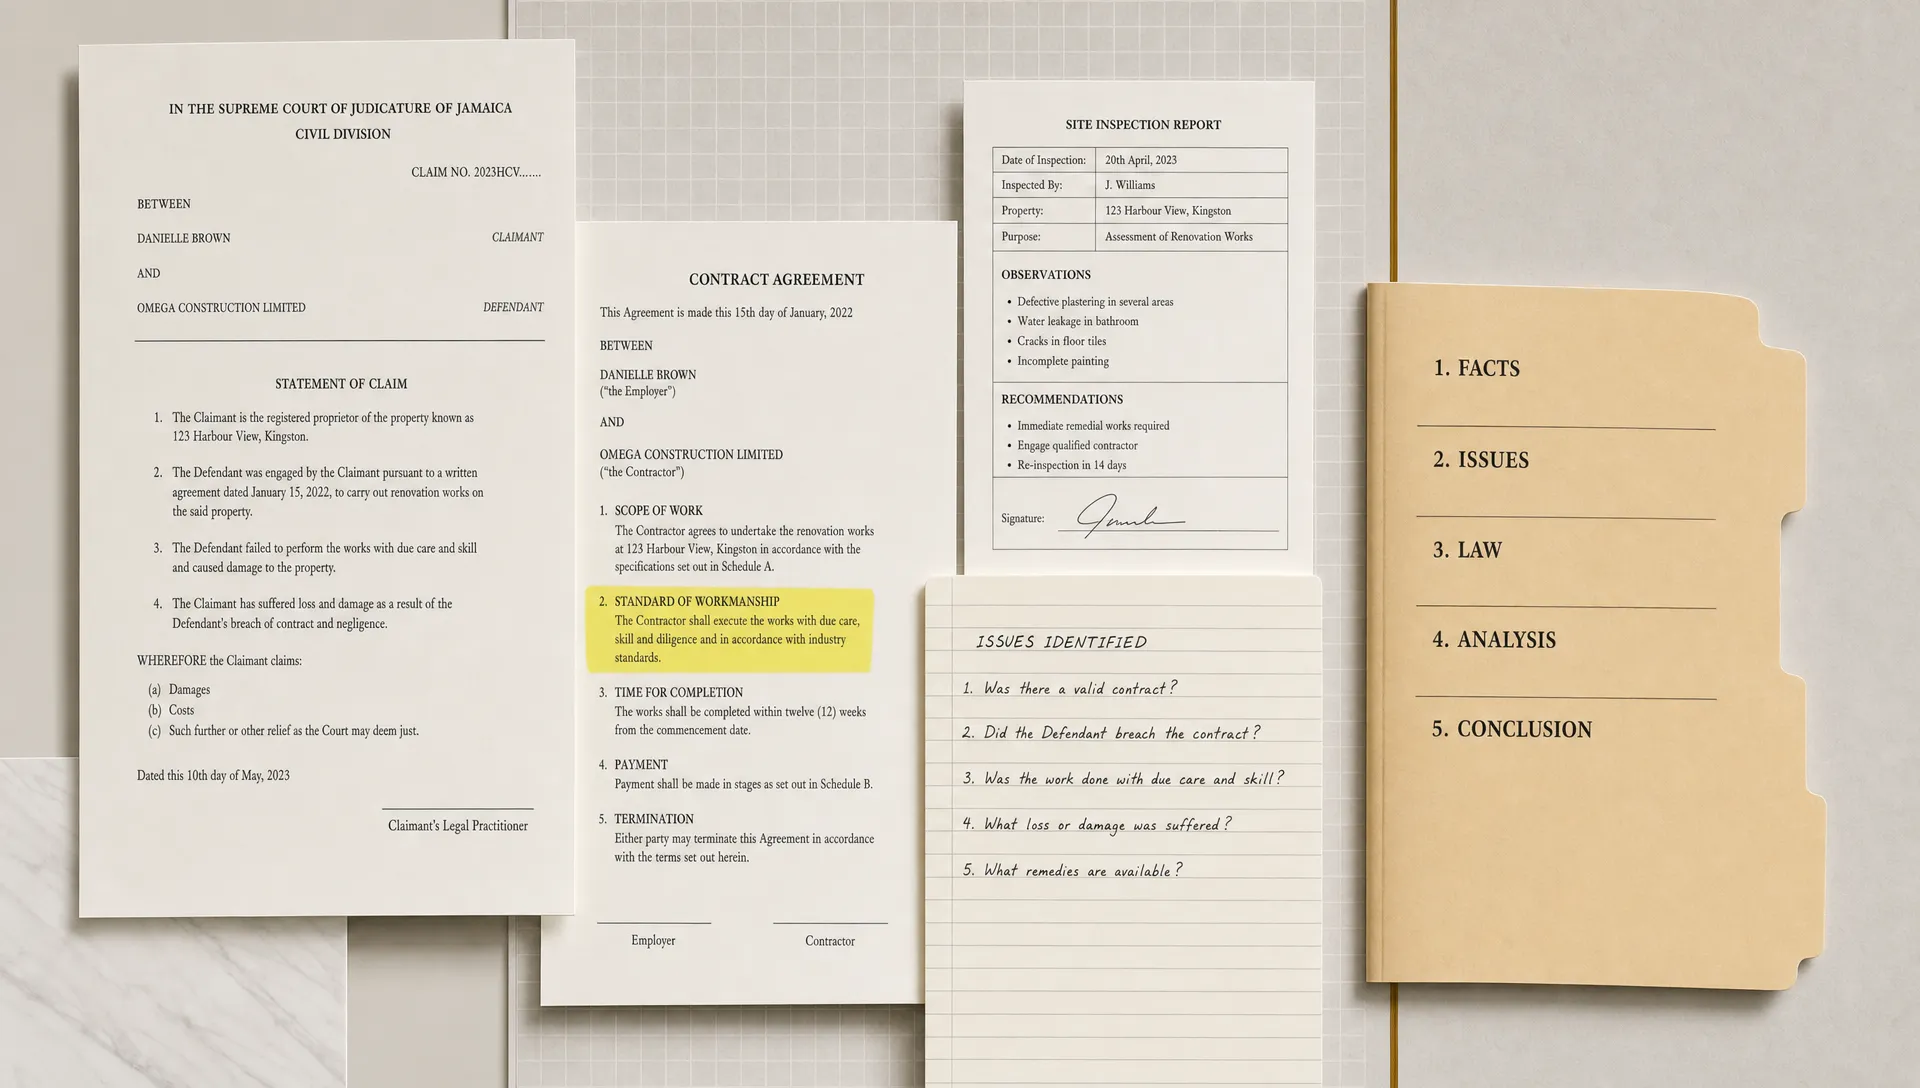 IN THE SUPREME COURT OF JUDICATURE OF JAMAICA
CIVIL DIVISION
CLAIM NO. 2023HCV.......
BETWEEN
DANIELLE BROWN CLAIMANT
AND
OMEGA CONSTRUCTION LIMITED DEFENDANT
STATEMENT OF CLAIM
1. The Claimant is the registered proprietor of the property known as
123 Harbour View, Kingston.
2. The Defendant was engaged by the Claimant pursuant to a written
agreement dated January 15, 2022, to carry out renovation works on
the said property.
3. The Defendant failed to perform the works with due care and skill
and caused damage to the property.
4. The Claimant has suffered loss and damage as a result of the
Defendant's breach of contract and negligence.
WHEREFORE the Claimant claims:
(a) Damages
(b) Costs
(c) Such further or other relief as the Court may deem just.
Dated this 10th day of May, 2023
Claimant's Legal Practitioner
CONTRACT AGREEMENT
This Agreement is made this 15th day of January, 2022
BETWEEN
DANIELLE BROWN
("the Employer")
AND
OMEGA CONSTRUCTION LIMITED
("the Contractor")
1. SCOPE OF WORK
The Contractor agrees to undertake the renovation works
at 123 Harbour View, Kingston in accordance with the
specifications set out in Schedule A.
2. STANDARD OF WORKMANSHIP
The Contractor shall execute the works with due care,
skill and diligence and in accordance with industry
standards.
3. TIME FOR COMPLETION
The works shall be completed within twelve (12) weeks
from the commencement date.
4. PAYMENT
Payment shall be made in stages as set out in Schedule B.
5. TERMINATION
Either party may terminate this Agreement in accordance
with the terms set out herein.
Employer Contractor
SITE INSPECTION REPORT
Date of Inspection: 20th April, 2023
Inspected By: J. Williams
Property: 123 Harbour View, Kingston
Purpose: Assessment of Renovation Works
OBSERVATIONS
• Defective plastering in several areas
• Water leakage in bathroom
• Cracks in floor tiles
• Incomplete painting
RECOMMENDATIONS
• Immediate remedial works required
• Engage qualified contractor
• Re-inspection in 14 days
Signature:
ISSUES IDENTIFIED
1. Was there a valid contract?
2. Did the Defendant breach the contract?
3. Was the work done with due care and skill?
4. What loss or damage was suffered?
5. What remedies are available?
1. FACTS
2. ISSUES
3. LAW
4. ANALYSIS
5. CONCLUSION